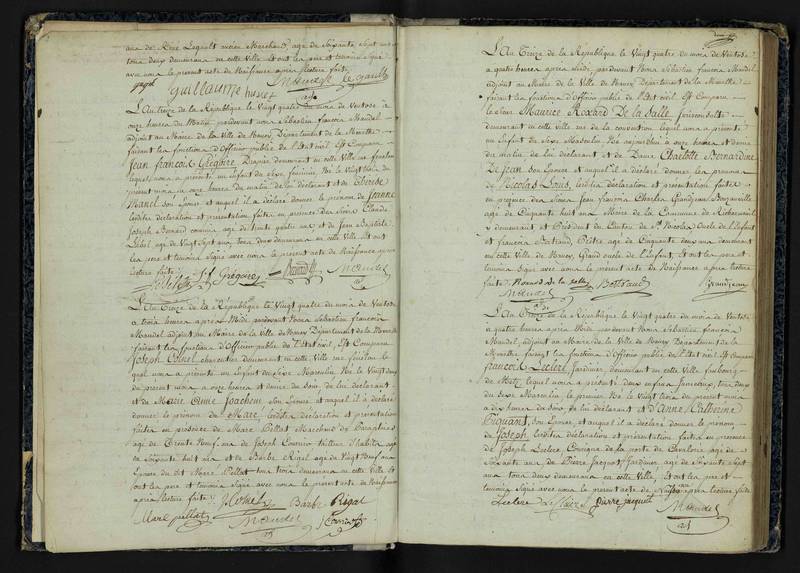 ans de René Legault ancien Marchand, age de Soixante Sept ans
tous deux demeurans en cette Ville et ont les pere et temoins signé
avec nous le present acte de Naissance après lecture faite
Guillaume
Mandel
L'An treize de la République le Vingt quatre du mois de Ventose à
onze heures du Matin pardevant Nous Sebastien francois Mandel
adjoint au Maire de la Ville de Nancy Département de la Meurthe
faisant les fonctions d'Officier public de l'Etat civil Est Comparu
Jean francois Grégoire Drapier demeurant en cette Ville
lequel nous a présenté un Enfant du Sexe féminin Né le Vingt trois du
present mois a onze heures du matin de lui déclarant et de Thérèse
Manel son Epouse et auquel il a déclaré donner le prénom de Jeanne
lesdites déclaration et présentation faites en présence des Sieurs Claude
Joseph Bonard commis age de trente quatre ans et de Jean Baptiste
Libel age de Vingt Sept ans, tous deux demeurans en cette Ville Et ont
les pere et temoins Signé avec nous le present acte de Naissance après
lecture faite
J f Grégoire
Mandel
L'An Treize de la République le Vingt quatre du mois de Ventose
a trois heures après Midi pardevant Nous Sebastien francois
Mandel adjoint au Maire de la Ville de Nancy Département de la Meurthe
faisant les fonctions d'Officier public de l'Etat civil Est Comparu
Joseph Cornet demeurant en cette Ville
lequel nous a présenté un Enfant du Sexe Masculin Né le Vingt
du present mois a onze heures et demie du Soir de lui déclarant
et de Marie Anne Joachem son Epouse et auquel il a déclaré
donner le prénom de Marc lesdites déclaration et présentation
faites en présence de Marc Pillot Marchand
age de Trente Neuf ans de Joseph Cournier tailleur d'habits age
de Soixante huit ans et de Barbe Rigal age de Vingt Neuf ans
Epouse du dit Marc Pillot tous trois demeurans en cette Ville Et
ont les pere et temoins Signé avec nous le present acte de Naissance
après lecture faite
J Cornet Barbe Rigal
Marc pillot Mandel
L'An Treize de la République le Vingt quatre du mois de Ventose
a quatre heures après Midi, pardevant Nous Sebastien francois Mandel
adjoint au Maire de la Ville de Nancy Département de la Meurthe
faisant les fonctions d'Officier public de l'Etat civil Est Comparu
le Sieur Maurice Rosard De la Salle Jurisconsulte
demeurant en cette Ville rue de la Convention lequel nous a présenté
un Enfant du Sexe Masculin Né aujourdhui a onze heures et demie
du matin de lui déclarant et de Dame Charlotte Bernardine
De Jean son Epouse et auquel il a déclaré donner les prénoms
de Nicolas Louis, lesdites déclaration et présentation faites
en présence des Sieurs Jean francois Charles Grandjean
age de Cinquante huit ans Maire de la Commune de
y demeurant et Président du Canton de St Nicolas Oncle de l'Enfant
et francois Bertrand, age de Cinquante deux ans demeurant
en cette Ville de Nancy, Grand oncle de l'Enfant, Et ont les pere et
temoins Signé avec nous le present acte de Naissance après lecture
faite Rosard de la Salle Grandjean
Mandel
L'An Treize de la République, le Vingt quatre du mois de Ventose
a quatre heures après Midi pardevant Nous Sebastien francois
Mandel, adjoint au Maire de la Ville de Nancy Département de la
Meurthe faisant les fonctions d'Officier public de l'Etat civil Est Comparu
francois Leclerc, Jardinier demeurant en cette Ville faubourg
de Metz lequel nous a présenté deux enfans jumeaux, tous deux
du Sexe Masculin, le premier Né le Vingt trois du present mois
a dix heures du Soir de lui déclarant et d'Anne Catherine
Tiquant, son Epouse et auquel il a déclaré donner le prénom
de Joseph lesdites déclaration et présentation faites en présence
de Joseph Leclerc Consigne de la porte de age de
Soixante ans de Pierre Jacquot Jardinier age de Soixante Sept
ans tous deux demeurans en cette Ville, Et ont les pere et
temoins Signé avec nous le present acte de Naissance après lecture faite
Leclerc pierre jacquot
Mandel